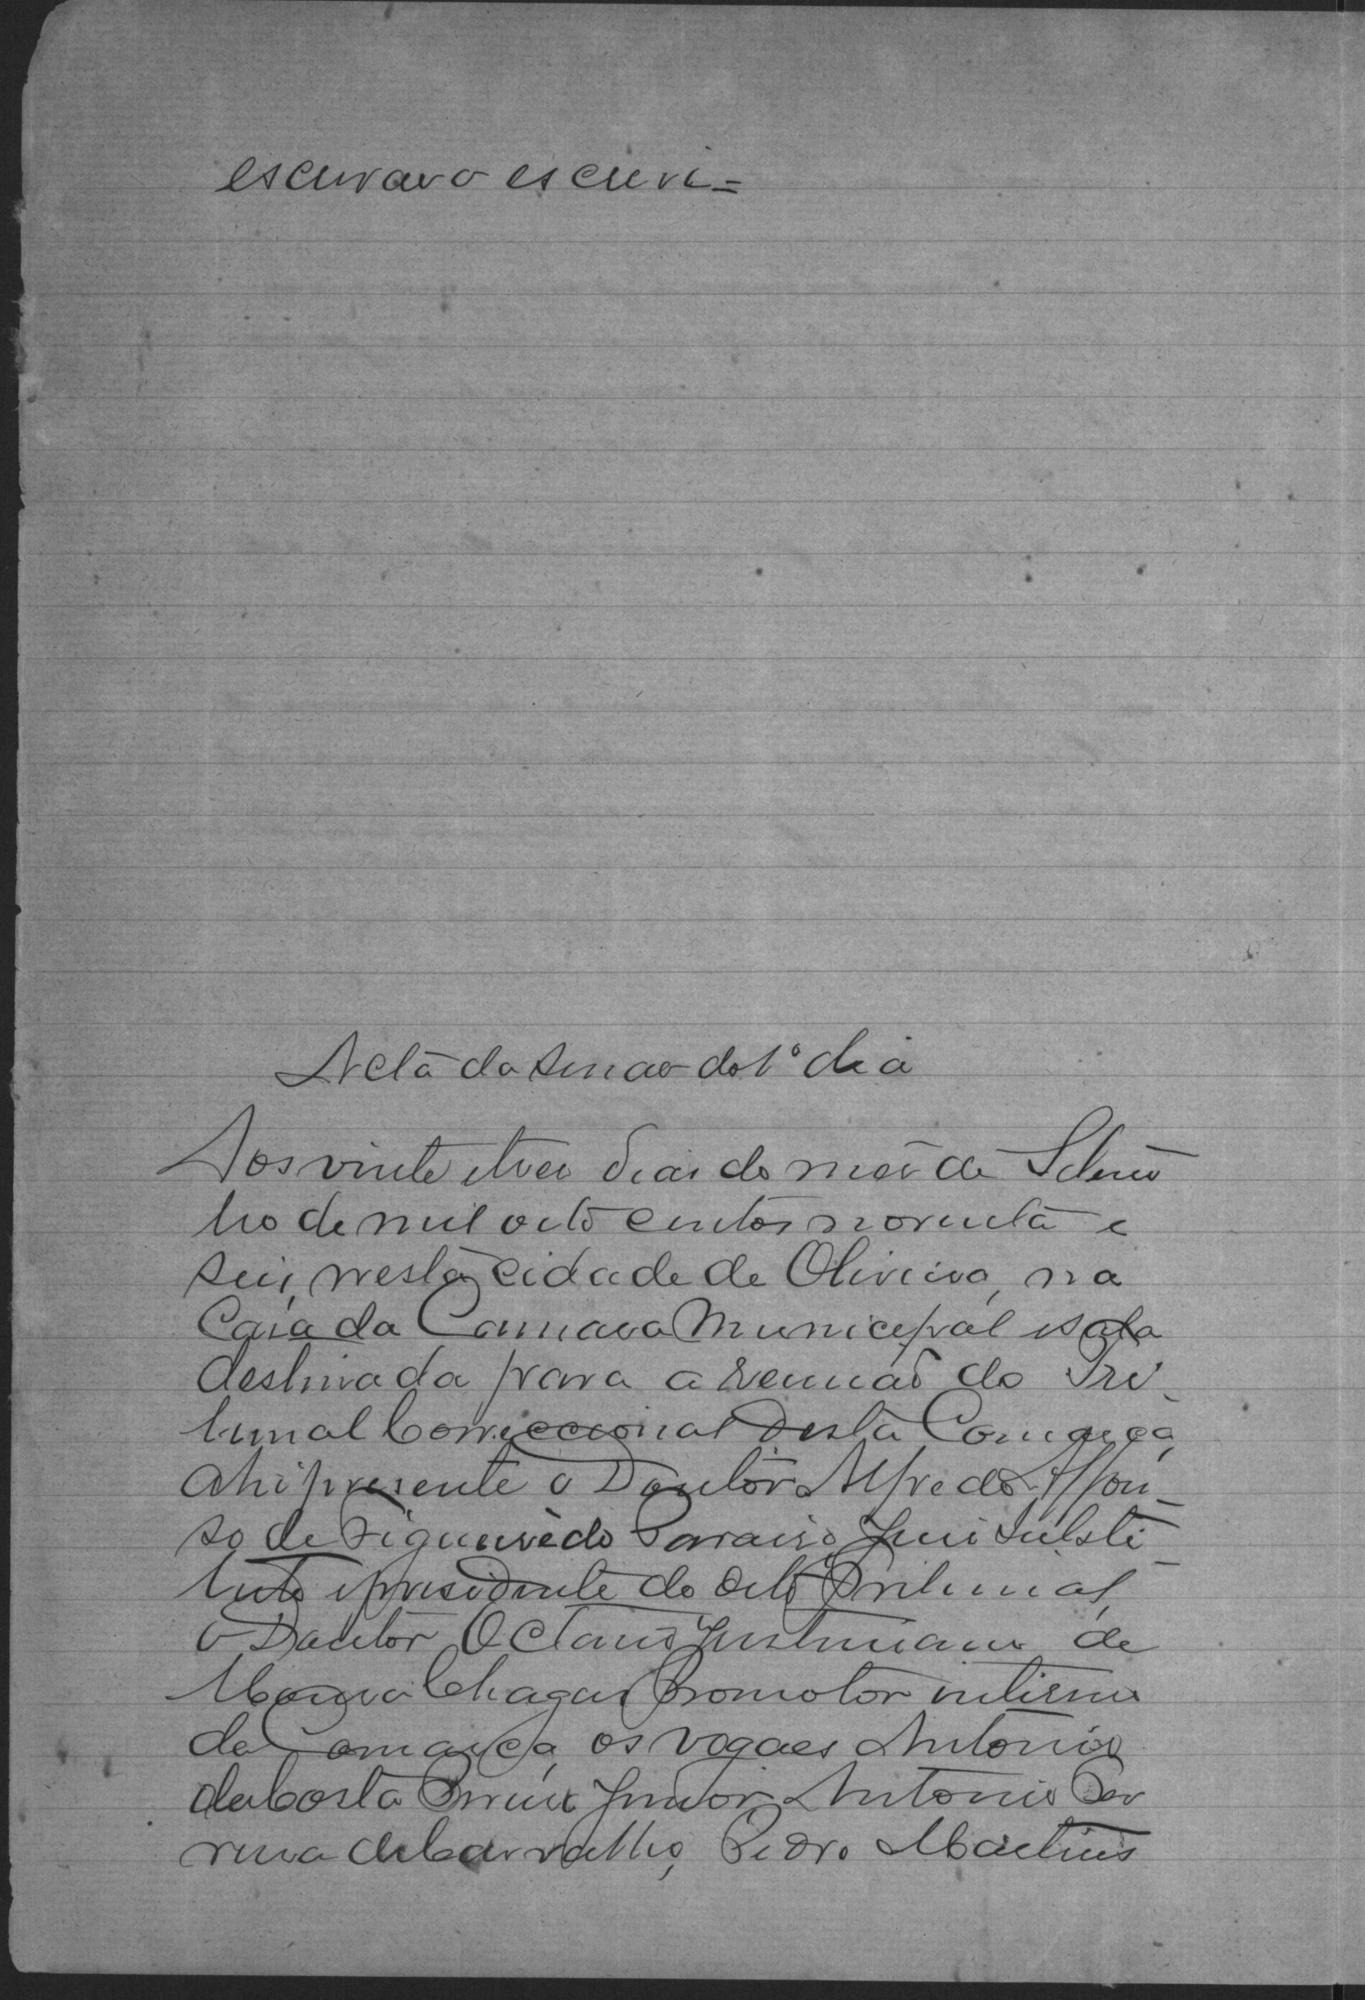 escrivão escrevi=
Acta da sessão do 1º dia
Aos vinte e tres dias do mês de Setem
bro de mil oito centos noventa e
seis, nesta cidade de Oliveira, na
Casa da Camara Municipal e sala
destinada para a reunião do Tri-
bunal Correccional desta Comarca,
ahi presente o Doutor Alfredo Affon-
so de Figueirêdo Paraiso, Juis substi-
tuto e presidente do dito Tribunal,
o Doutor Octavio Justiniano de
Chagas Promotor interino
da Comarca, os vogaes Antonio
da Costa Junior Antonio Fer
reira de Carvalho, Pedro Martins